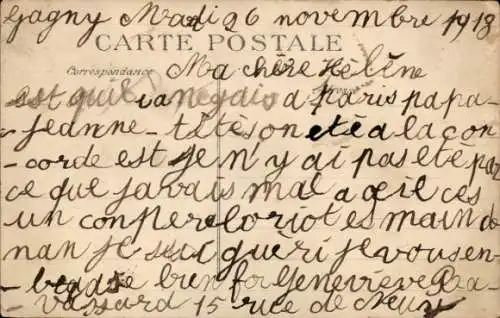 Gagny Mardi 26 novembre 1918
CARTE POSTALE
Correspondance
Ma chère Hélène
est qu'il ia negais a paris papa
- jeanne - titèson etè a la con
- corde est je n'y ai pas etè par
ce que javais mal a oeil ces
un conpere loriot es main de
nan je suis guèri je vous en
- brasse bien for Geneviève
- vassard 15 rue de